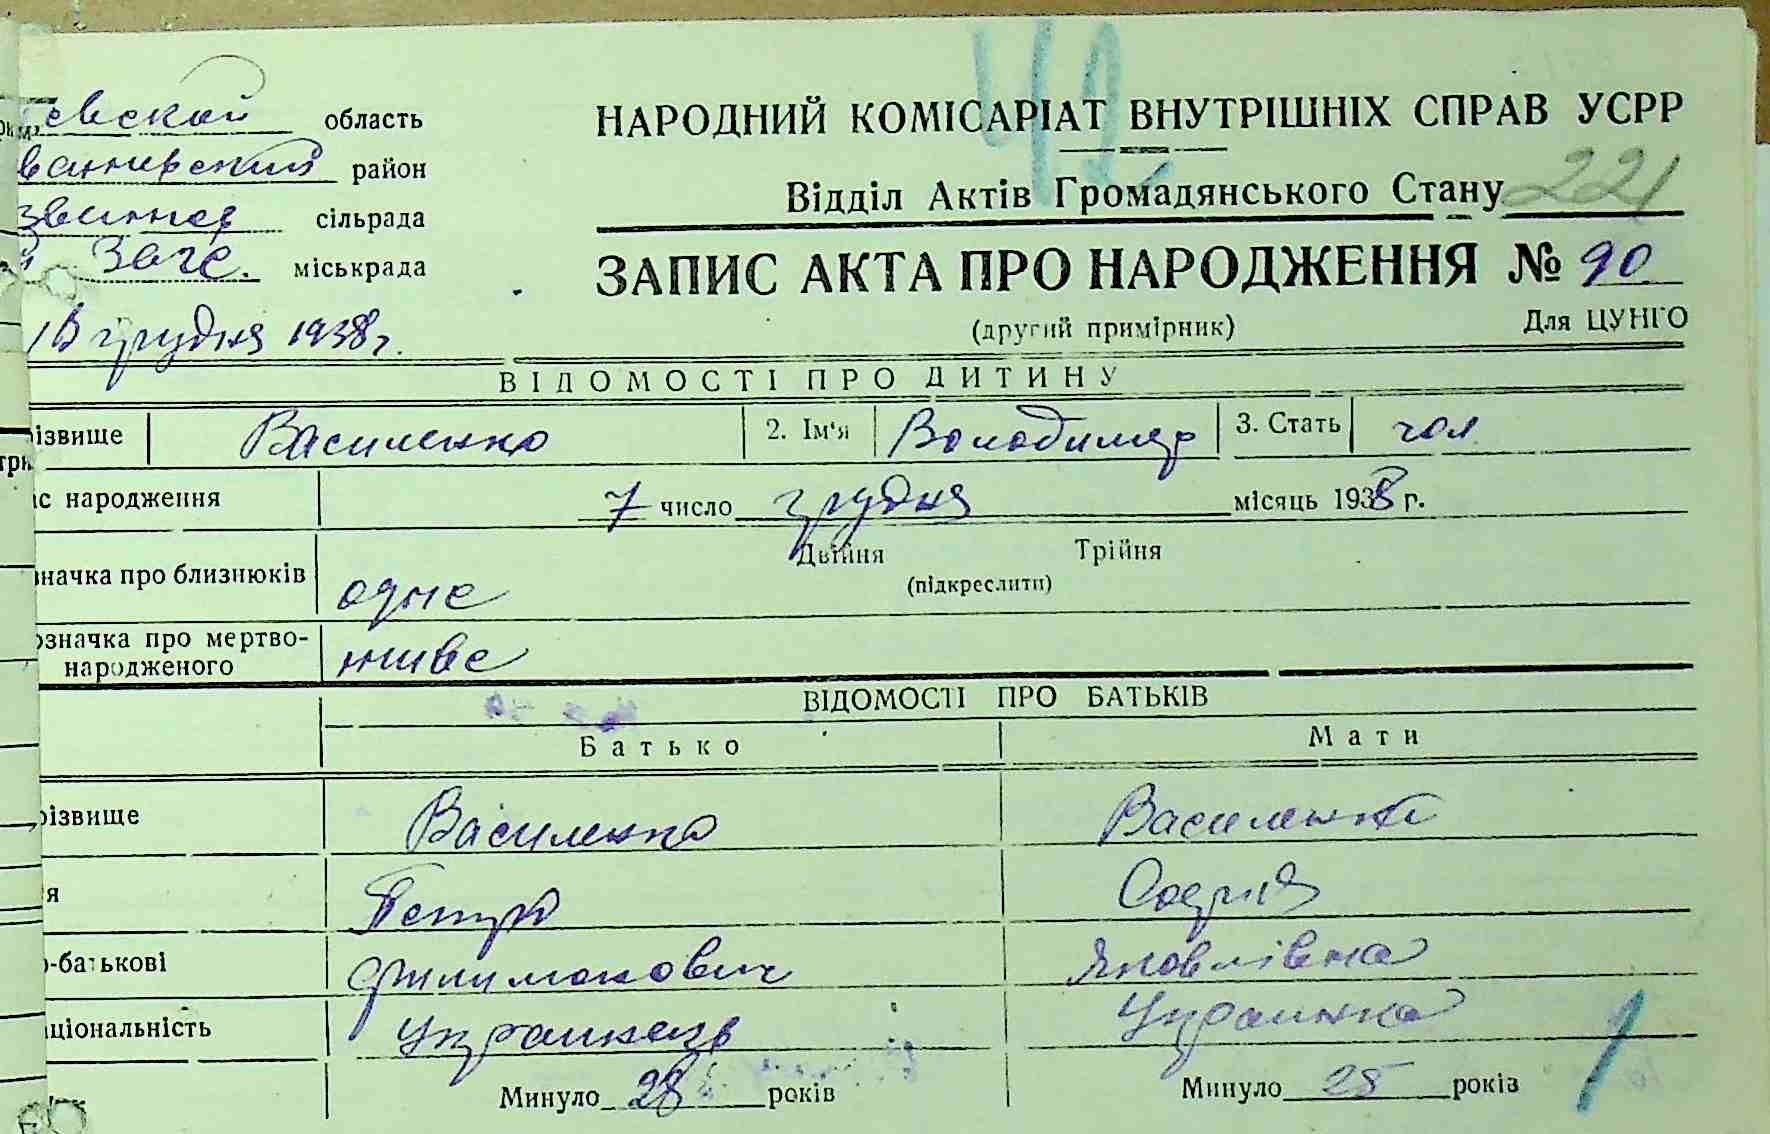 евской область
район
сільрада
міськрада
НАРОДНИЙ КОМІСАРІАТ ВНУТРІШНІХ СПРАВ УСРР
42
Відділ Актів Громадянського Стану 221
ЗАПИС АКТА ПРО НАРОДЖЕННЯ № 90
грудня 1938 г. (другий примірник) Для ЦУНГО
ВІДОМОСТІ ПРО ДИТИНУ
ізвище Василенко 2. Ім'я Володимер 3. Стать чол.
с народження 7 число грудня місяць 1938 г.
Двійня Трійня
значка про близнюків одне (підкреслити)
означка про мертво-
народженого живе
ВІДОМОСТІ ПРО БАТЬКІВ
Батько Мати
різвище Василенко Василенко
я Петро Софія
-батькові Филимонович Яковлівна
ціональність Украинець Украинка
Минуло 28 років Минуло 25 років